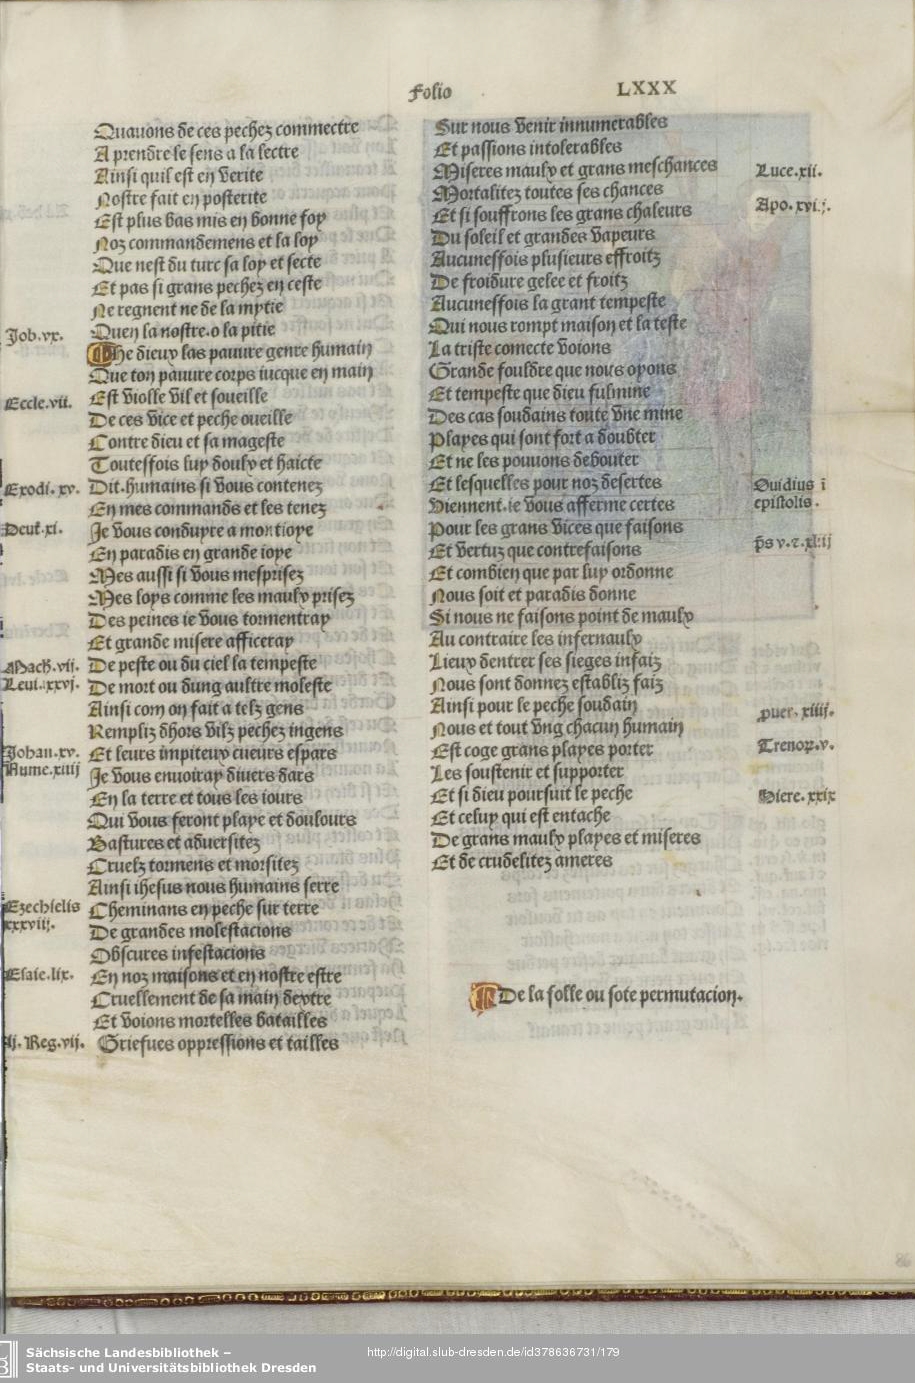 Folio LXXX
Quauons de ces pechez commectre
A prendre le sens a la lectre
Ainsi quil est en verite
Nostre fait en posterite
Est plus bas mis en bonne foy
Noz commandemens et la loy
Que nest du turc sa loy et secte
Et pas si grans pechez en ceste
Ne regnent ne de la mytie
Quen la nostre.o la pitie
He dieux las pauure genre humain
Que ton pauure corps iucque en main
Est violle vil et soueille
De ces vice et peche oueille
Contre dieu et sa mageste
Toutesfois luy doulx et haicte
Dit.humains si vous contenez
En mes commands et les tenez
Je vous conduyre a montioye
En paradis en grande ioye
Mes aussi si vous mesprisez
Mes loys comme les maulx prisez
Des peines ie vous tormentray
Et grande misere afficeray
De peste ou du ciel la tempeste
De mort ou dung aultre moleste
Ainsi com on fait a telz gens
Rempliz dhors vilz pechez ingens
Et leurs impiteux cueurs espars
Je vous enuoiray diuers dars
En la terre et tous les iours
Qui vous feront playe et doulours
Bastures et aduersitez
Cruelz tormens et morsitez
Ainsi ihesus nous humains serre
Cheminans en peche sur terre
De grandes molestacions
Obscures infestacions
En noz maisons et en nostre estre
Cruellement de sa main dextre
Et voions mortelles batailles
Griefues oppressions et tailles
Job.vx.
Eccle.vii.
Exodi.xv.
Deut.xi.
Mach.vij.
Leui.xxvj.
Johan.xv.
Nume.xiiij
Ezechielis
xxxviij.
Esaie.lix.
ij.Reg.vij.
Sur nous venir innumerables
Et passions intolerables
Miseres maulx et grans meschances
Mortalitez toutes ses chances
Et si souffrons les grans chaleurs
Du soleil et grandes vapeurs
Aucunesfois plusieurs effroitz
De froidure gelee et froitz
Aucunesfois la grant tempeste
Qui nous rompt maison et la teste
La triste comecte voions
Grande fouldre que nous oyons
Et tempeste que dieu fulmine
Des cas soudains toute vne mine
Playes qui sont fort a doubter
Et ne les pouuons debouter
Et lesquelles pour noz desertes
Viennent.ie vous afferme certes
Pour les grans vices que faisons
Et vertuz que contrefaisons
Et combien que par luy ordonne
Nous soit et paradis donne
Si nous ne faisons point de maulx
Au contraire les infernaulx
Lieux dentrer ses sieges infaiz
Nous sont donnez establiz faiz
Ainsi pour le peche soudain
Nous et tout vng chacun humain
Est coge grans playes porter
Les soustenir et supporter
Et si dieu poursuit le peche
Et celuy qui est entache
De grans maulx playes et miseres
Et de crudelitez ameres
De la folle ou sote permutacion.
Luce.xii.
Apo.xvi.j.
Ouidius ī
epistolis.
p̄s v.⁊.xliij
puer.xiiij.
Trenoꝝ.v.
Hiere.xxix
86
Sächsische Landesbibliothek –
Staats- und Universitätsbibliothek Dresden
http://digital.slub-dresden.de/id378636731/179